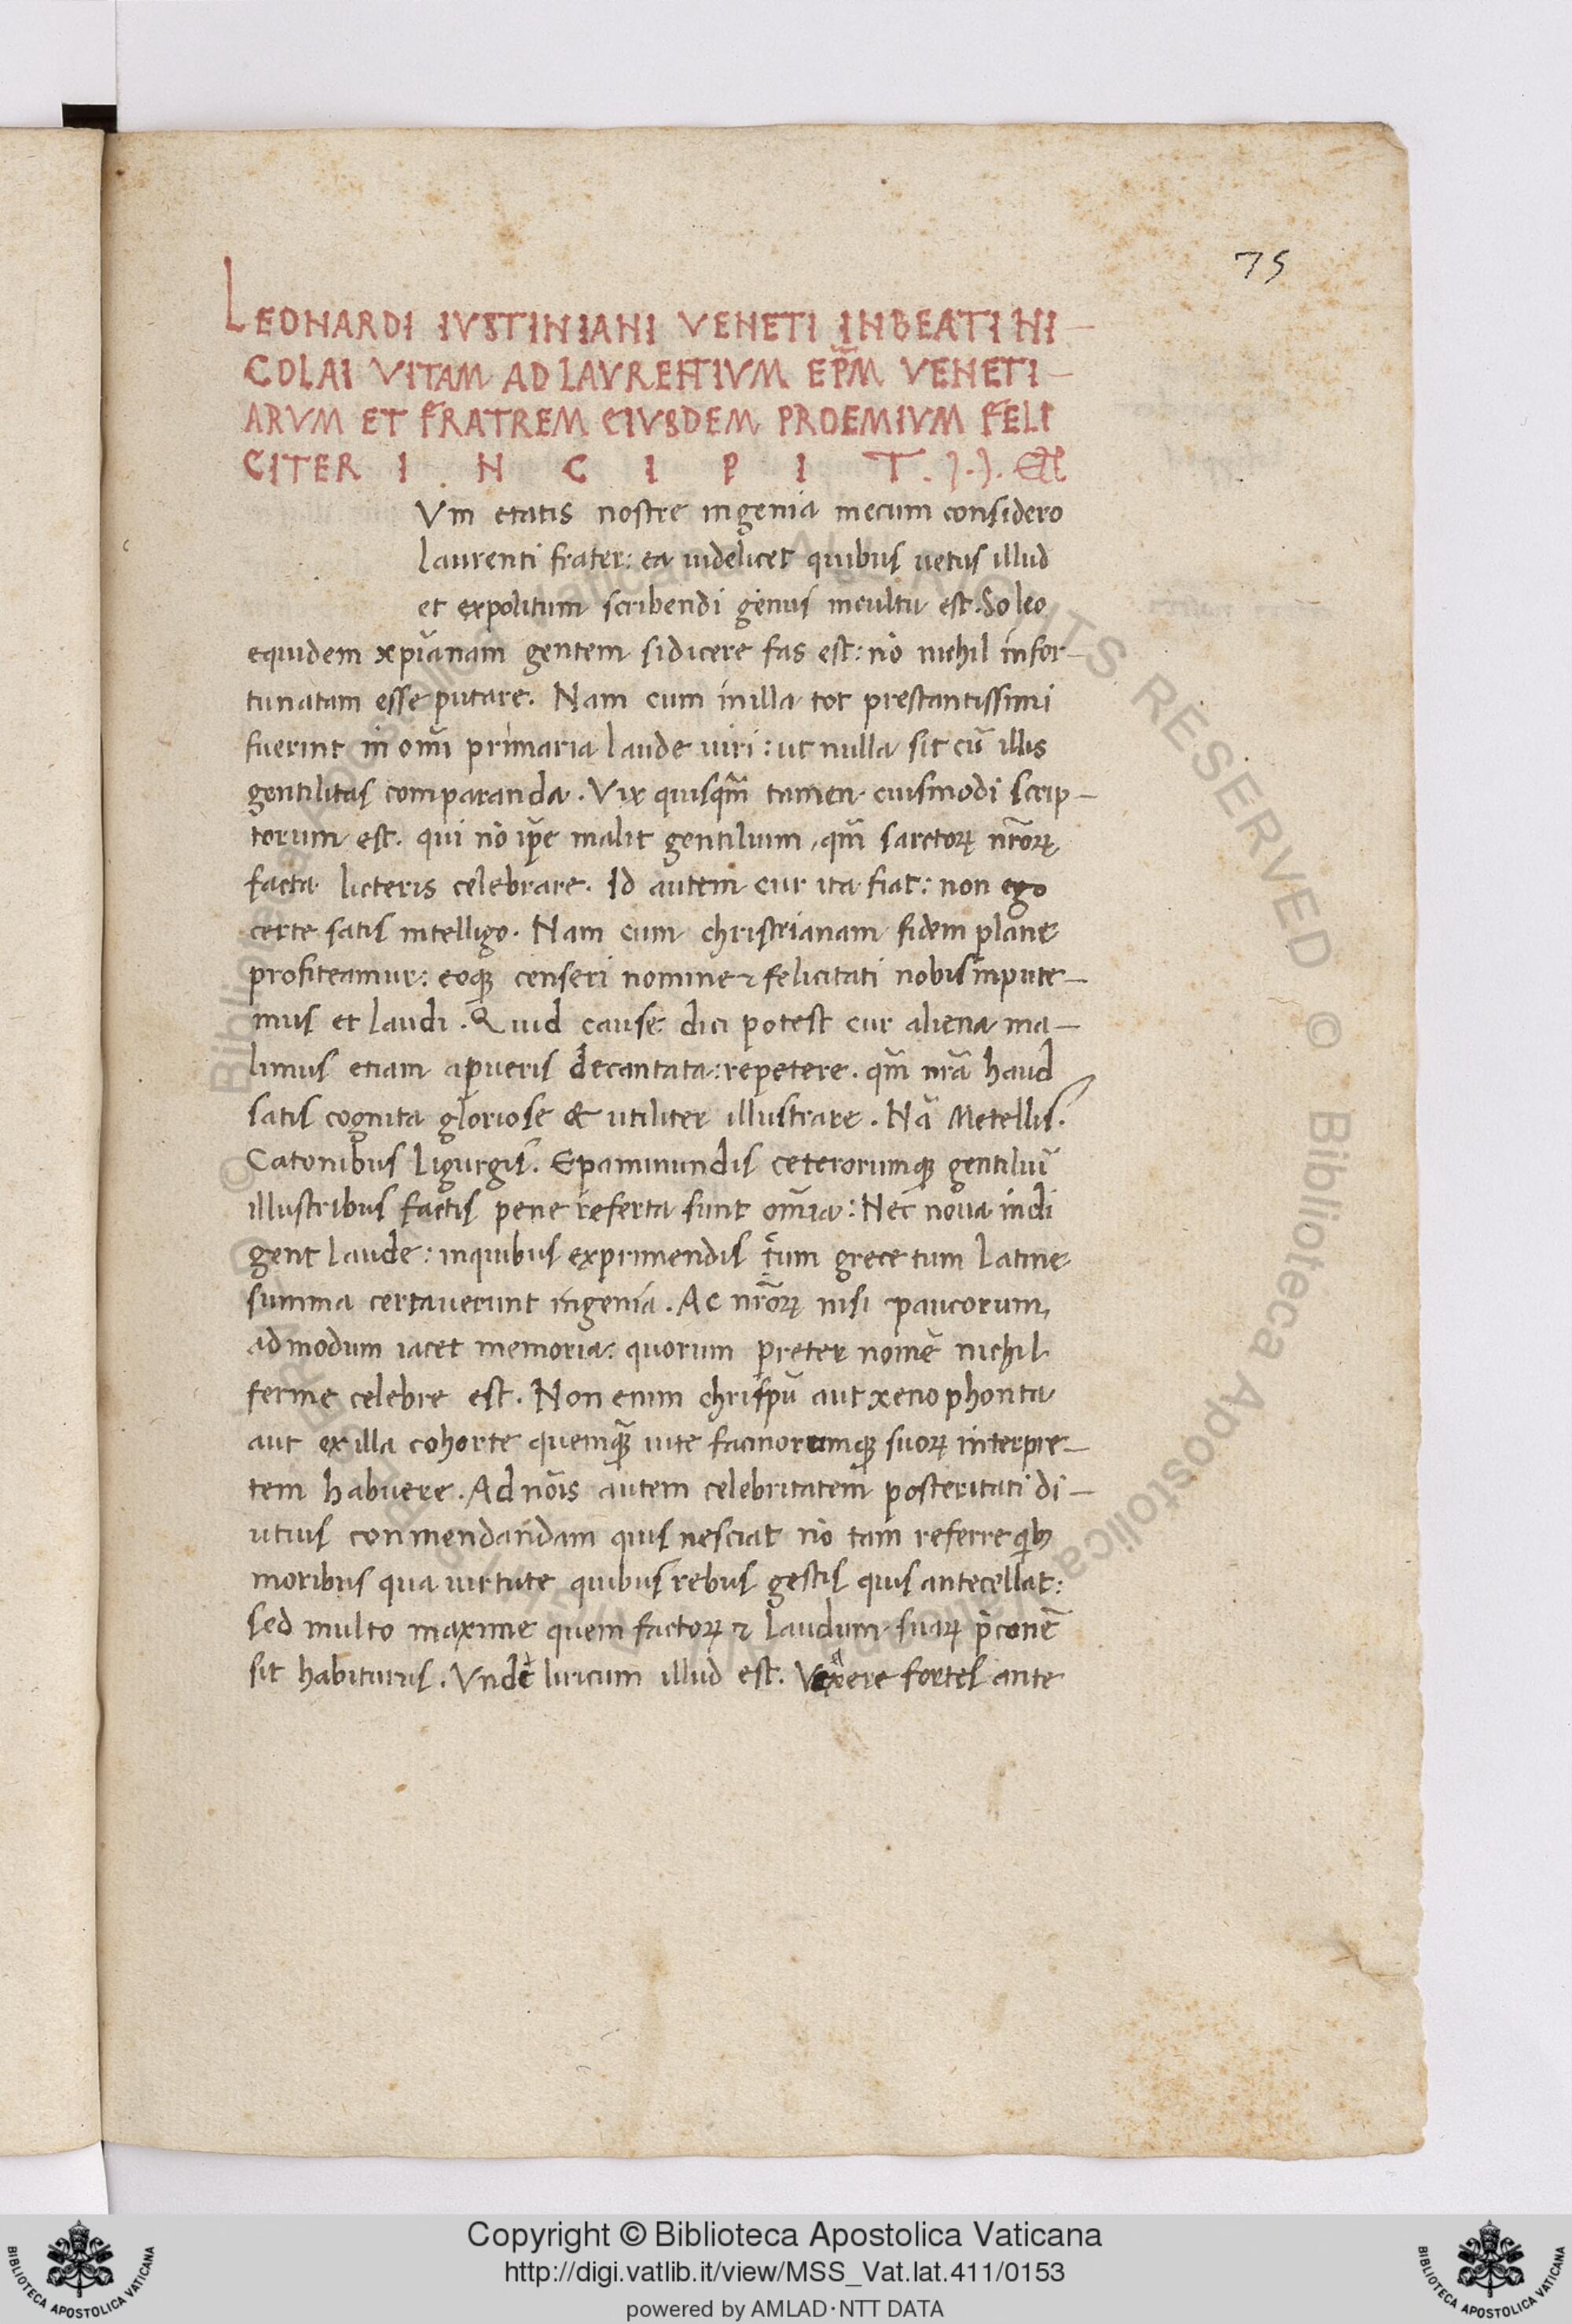 75
LEONARDI IVSTINIANI VENETI INBEATI NI-
COLAI VITAM AD LAVRENTIVM EP̅M VENETI-
ARVM ET FRATREM EIVSDEM PROEMIVM FELI
CITER I N C I P I T.
Vm etatis nostre ingenia mecum considero
laurenti frater: ea uidelicet quibus uetus illud
et expolitum scribendi genus incultu est. Soleo
equidem xp̅ianam gentem sidicere fas est: no̅ nichil infor-
tunatam esse putare. Nam cum inilla tot prestantissimi
fuerint in om̅i primaria laude uiri: ut nulla sit cu̅ illis
gentilitas comparanda. Vix quisqm̅ tamen cuismodi scrip-
torum est. qui no̅ ip̅e malit gentilium, qm̅ sanctoꝝ nr̅oꝝ
facta licteris celebrare. Id autem cur ita fiat: non ego
certe satis intelligo. Nam cum christianam fidem plane
profiteamur: eoqꝫ censeri nomine ⁊ felicitati nobis impute-
mus et laudi. Quid cause dici potest cur aliena ma-
limus etiam apueris decantata: repetere. qm̅ nr̅a haud
satis cognita gloriose & utiliter illustrare. Na̅ Metellis.
Catonibus Ligurgis. Epaminundis ceterorumqꝫ gentiliu̅
illustribus factis pene referta sunt om̅ia: Nec noua indi
gent laude: inquibus exprimendis tum grece tum latine
summa certauerunt ingenia. Ac nr̅oꝝ nisi paucorum
admodum iacet memoria: quorum preter nome̅ nichil
ferme celebre est. Non enim chrispu̅ aut xenophonta
aut ex illa cohorte quemqꝫ̅ uite facinorumqꝫ suoꝝ interpre-
tem habuere. Ad no̅is autem celebritatem posteritati di-
utius conmendandam quis nesciat no̅ tam referre qibꝫ
moribus qua uirtute quibus rebus gestis quis antecellat:
sed multo maxime quem factoꝝ ⁊ laudum suaꝝ p̅cone̅
sit habiturus. Vnde liricum illud est. Vixere fortes ante
Copyright © Biblioteca Apostolica Vaticana
http://digi.vatlib.it/view/MSS_Vat.lat.411/0153
powered by AMLAD·NTT DATA
BIBLIOTECA APOSTOLICA VATICANA
BIBLIOTECA APOSTOLICA VATICANA